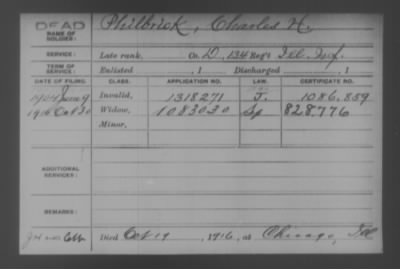 DEAD
NAME OF SOLDIER: Philbrick, Charles H.
SERVICE: Late rank, Co. D, 134 Reg't Ill. Inf.
TERM OF SERVICE: Enlisted , 1 Discharged , 1
DATE OF FILING. CLASS. APPLICATION NO. LAW. CERTIFICATE NO.
1904 June 9 Invalid, 1318271 J. 1086.859
1916 Oct 30 Widow, 1083030 828776
Minor,
ADDITIONAL SERVICES:
REMARKS:
Died Oct 19, 1916, at Chicago, Ill